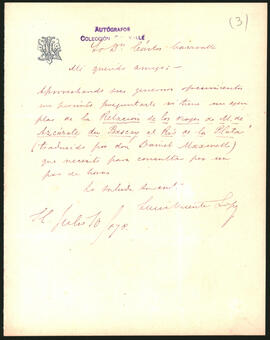 (3)
AUTÓGRAFOS
COLECCIÓN
Sr Dn Carlos Casavalle
Mi querido amigo:-
Aprovechando sus generosos ofrecimientos
me permito preguntarle si tiene un ejem
plar de la Relacion de los viajes de M. de
Azcarate du Biscay al Rio de la Plata
(traducido por don Daniel Maxwell)
que necesito para consultar por un
par de horas
Lo saluda
Lucio Vicente Lopez
Julio 10